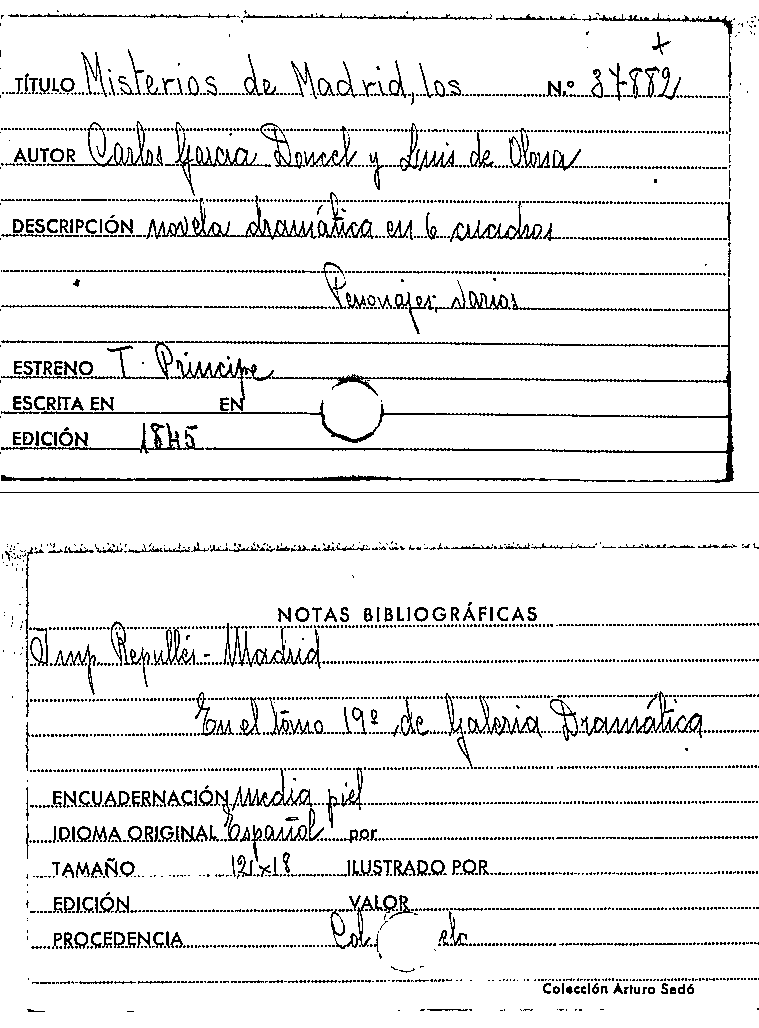 +
TÍTULO Misterios de Madrid, los N.º 37882
AUTOR Carlos Garcia Doncel y Luis de Olona
DESCRIPCIÓN novela dramática en 6 cuadros
Personajes, varios
ESTRENO T. Principe
ESCRITA EN EN
EDICIÓN 1845
NOTAS BIBLIOGRÁFICAS
Imp Repullés - Madrid
En el tomo 19º de Galeria Dramática
ENCUADERNACIÓN media piel
IDIOMA ORIGINAL Español por
TAMAÑO 12'x18 ILUSTRADO POR
EDICIÓN VALOR
PROCEDENCIA Col
Colección Arturo Sedó